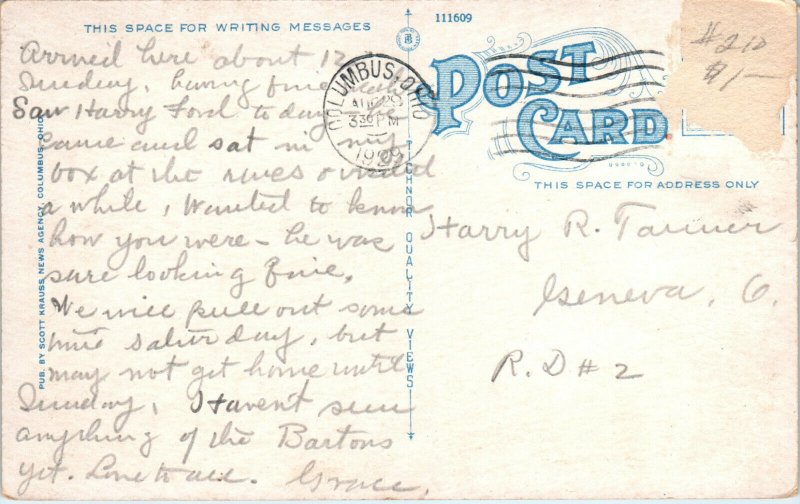 THIS SPACE FOR WRITING MESSAGES
111609
POST
CARD
THIS SPACE FOR ADDRESS ONLY
#210
$1—
COLUMBUS, OHIO
330 PM
Arrived here about 12
Sunday, having fine
Saw Harry Ford to day
Came and sat in my
box at the races
a while, Wanted to know
how you were – he was
sure looking fine.
We will pull out some
time Saturday, but
may not get home until
Sunday, Haven't seen
anything of the Bartons
yet. Love to all. Grace.
Harry R. Tanner,
Geneva, O.
R. D # 2
PUB. BY SCOTT KRAUSS, NEWS AGENCY, COLUMBUS, OHIO
TICHNOR QUALITY VIEWS